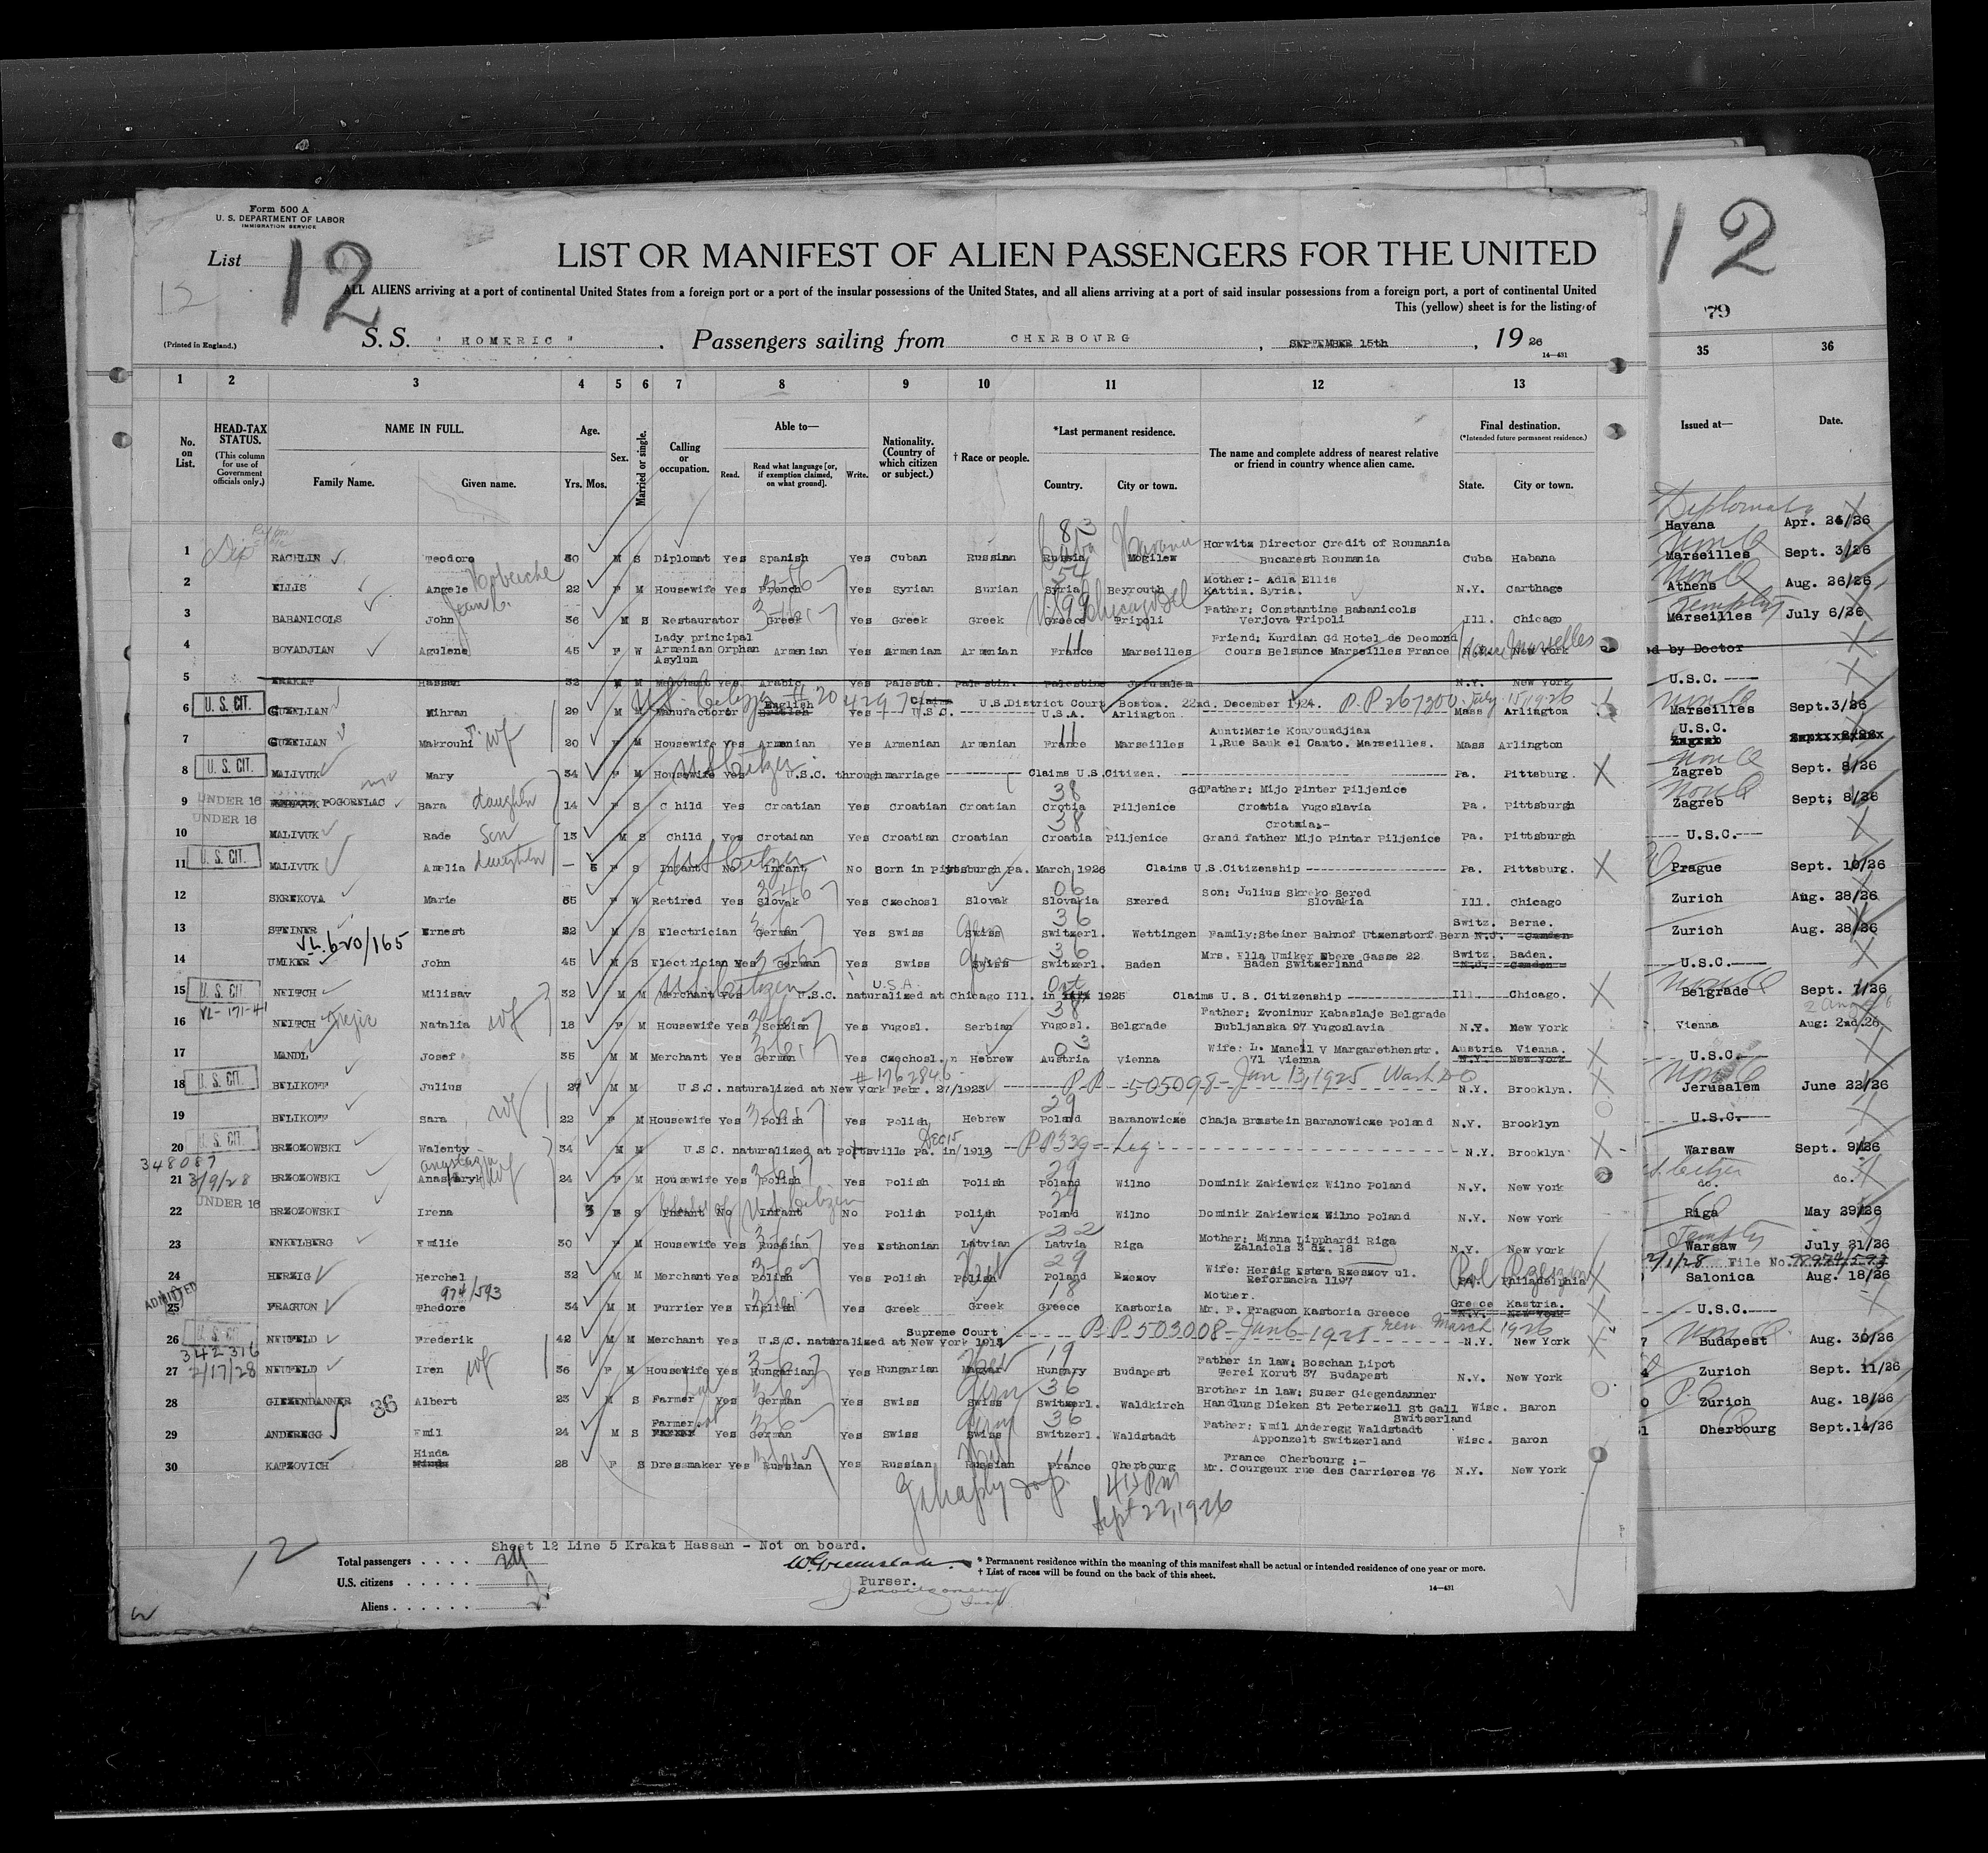 Form 500 A
U. S. DEPARTMENT OF LABOR
IMMIGRATION SERVICE
List 12
12
LIST OR MANIFEST OF ALIEN PASSENGERS FOR THE UNITED
ALL ALIENS arriving at a port of continental United States from a foreign port or a port of the insular possessions of the United States, and all aliens arriving at a port of said insular possessions from a foreign port, a port of continental United
This (yellow) sheet is for the listing of
(Printed in England.)
S. S. " HOMERIC " . Passengers sailing from CHERBOURG , SEPTEMBER 15th , 19 26
14—431
1 2 3 4 5 6 7 8 9 10 11 12 13
No. on List.
HEAD-TAX STATUS. (This column for use of Government officials only.)
NAME IN FULL. Family Name. Given name.
Age. Yrs. Mos.
Sex.
Married or single.
Calling or occupation.
Able to— Read. Read what language [or, if exemption claimed, on what ground]. Write.
Nationality. (Country of which citizen or subject.)
† Race or people.
*Last permanent residence. Country. City or town.
The name and complete address of nearest relative or friend in country whence alien came.
Final destination. (*Intended future permanent residence.) State. City or town.
1 Dip RACHLIN Teodoro 30 M S Diplomat Yes Spanish Yes Cuban Russian Russia Mogilew Horwitz Director Credit of Roumania Bucarest Roumania Cuba Habana
2 ELLIS Angele 22 F M Housewife Yes French Yes Syrian Surian Syria Beyrouth Mother:- Adla Ellis Kattin. Syria. N.Y. Carthage
3 BABANICOLS John 36 M S Restaurator Greek Yes Greek Greek Greece Tripoli Father; Constantine Babanicols Verjova Tripoli Ill. Chicago
4 BOYADJIAN Agulene 45 F W Lady principal Armenian Orphan Asylum Armenian Yes Armenian Armenian France Marseilles Friend; Kurdian Gd Hotel de Deomond Cours Belsunce Marseilles France N.Y. New York
5 KRAKAT Hassan 32 M M Merchant Yes Arabic Yes Palestn. Palestin. Palestine Jerusalem N.Y. New York
6 U. S. CIT. GUZELIAN Mihran 29 M M Manufactorer English British Yes U.S.C. Claims U.S.District Court Boston. 22nd. December 1924. P.P 267300 July 15 1926 U.S.A. Arlington Mass Arlington
7 GUZELIAN Makrouhi wf 20 F M Housewife Yes Armenian Yes Armenian Armenian France Marseilles Aunt:Marie Konyoundjian 1.Rue Sauk el Canto. Marseilles. Mass Arlington
8 U. S. CIT. MALIVUK Mary 34 F M Housewife Yes U.S.C. through marriage Claims U.S.Citizen. Pa. Pittsburg.
9 UNDER 16 POGORELAC Bara daughter 14 F S Child Yes Croatian Yes Croatian Croatian Crotia Piljenice GdFather; Mijo Pinter Piljenice Croatia Yugoslavia Pa. Pittsburgh
10 UNDER 16 MALIVUK Rade Son 13 M S Child Yes Crotaian Yes Croatian Croatian Croatia Piljenice Crotaia;- Grand father Mijo Pintar Piljenice Pa. Pittsburgh
11 U. S. CIT. MALIVUK Amelia daughter — 5 F S Infant No Infant No Born in Pittsburgh Pa. March 1926 Claims U.S.Citizenship Pa. Pittsburg.
12 SKREKOVA Marie 65 F W Retired Yes Slovak Yes Czechosl Slovak Slovakia Szered Son; Julius Skreko Sered Slovakia Ill. Chicago
13 STEINER Ernest 32 M S Electrician German Yes Swiss Swiss Switzerl. Wettingen Family:Steiner Bahnof Utzenstorf Bern Switz. Berne. N.J. Camden
14 UMIKER John 45 M S Electrician Yes German Yes Swiss Swiss Switzerl. Baden Mrs. Ella Umiker Ebere Gasse 22 Baden Switzerland Switz. Baden. N.J. Camden
15 U. S. CIT. NEITCH Milisav 32 M M Merchant Yes U.S.C. naturalized at Chicago Ill. in Oct 1925 Claims U. S. Citizenship Ill. Chicago.
16 VL-171-41 NEITCH Natalia wf 18 F M Housewife Yes Serbian Yes Yugosl. Serbian Yugosl. Belgrade Father; Zvoninur Kabaslaje Belgrade Bubljanska 97 Yugoslavia N.Y. New York
17 MANDL Josef 35 M M Merchant Yes German Yes Czechosl. Hebrew Austria Vienna Wife: L. Manell V Margarethenstr. 71 Vienna Austria Vienna. N.Y. New York
18 U. S. CIT. BELIKOFF Julius 27 M M U.S.C. naturalized at New York Febr. 27/1923 P.P. 505098 - Jan 13, 1925 Wash DC N.Y. Brooklyn.
19 BELIKOFF Sara wf 22 F M Housewife Yes Polish Yes Polish Hebrew Poland Baranowicze Chaja Bronstein Baranowicze Poland N.Y. Brooklyn
20 U. S. CIT. BRZOZOWSKI Walenty 34 M M U.S.C. naturalized at Portsville Pa. in/1919 DEC 15 N.Y. Brooklyn
21 348087 3/9/28 BRZOZOWSKI wf 24 F M Housewife Yes Polish Yes Polish Polish Poland Wilno Dominik Zakiewicz Wilno Poland N.Y. New York
22 UNDER 16 BRZOZOWSKI Irena 3 F S Infant No Infant No Polish Polish Poland Wilno Dominik Zakiewicz Wilno Poland N.Y. New York
23 ENKELBERG Emilie 30 F M Housewife Yes Russian Yes Esthonian Latvian Latvia Riga Mother; Minna Lipphardi Riga Zalaiels 3 dz. 18 N.Y. New York
24 HERZIG Herchel 32 M M Merchant Yes Polish Yes Polish Polish Poland Rzezov Wife: Herzig Estera Rzeszov ul. Reformacka 1197 Pa. Philadelphia
25 ADMITTED FRAGUON Thedore 974/593 34 M M Furrier Yes English Yes Greek Greek Greece Kastoria Mother. Mr. F. Fraguon Kastoria Greece Greece Kastria. N.Y. New York
26 U. S. CIT. NEUFELD Frederik 42 M M Merchant Yes U.S.C. naturalized at New York Supreme Court P.P. 503008 March 1926 N.Y. New York
27 342 316 2/17/28 NEUFELD Iren wf 36 F M Housewife Yes Hungarian Yes Hungarian Magyar Hungary Budapest Father in law; Boschan Lipot Terei Korut 37 Budapest N.Y. New York
28 GIEZENDANNER 36 Albert 23 M S Farmer Yes German Yes Swiss Swiss Switzerl. Waldkirch Brother in law; Suser Giegendanner Handlung Dieken St Peterzell St Gall Switzerland Wisc. Baron
29 ANDEREGG Emil 24 M S Farmer Yes German Yes Swiss Swiss Switzerl. Waldstadt Father; Emil Anderegg Waldstadt Apponzelt Switzerland Wisc. Baron
30 KATZOVICH Hinda 28 F S Dressmaker Yes Russian Yes Russian Russian France Cherbourg France Cherbourg :- Mr. Courgeux rue des Carrieres 76 N.Y. New York
415 PM
Sept 22, 1926
Sheet 12 Line 5 Krakat Hassan - Not on board.
12
Total passengers
U.S. citizens
Aliens
Purser.
* Permanent residence within the meaning of this manifest shall be actual or intended residence of one year or more.
† List of races will be found on the back of this sheet.
14—431
12
79
35 36
Issued at— Date.
Diplomat
Havana Apr. 24/26
Marseilles Sept. 3/26
Athens Aug. 26/26
Marseilles July 6/26
ed by Doctor
U.S.C.
Marseilles Sept.3/26
U.S.C.
Zagreb Sept. 8/26
Zagreb Sept; 8/26
U.S.C.
Prague Sept. 10/26
Zurich Aug. 28/26
Zurich Aug. 28/26
U.S.C.
Belgrade Sept. 1/26
Vienna Aug: 2nd.26
U.S.C.
Jerusalem June 22/26
U.S.C.
Warsaw Sept. 9/26
do. do.
Riga May 29/26
Warsaw July 31/26
2/1/28 File No.
Salonica Aug. 18/26
U.S.C.
Budapest Aug. 30/26
Zurich Sept. 11/26
Zurich Aug. 18/26
Cherbourg Sept.14/26